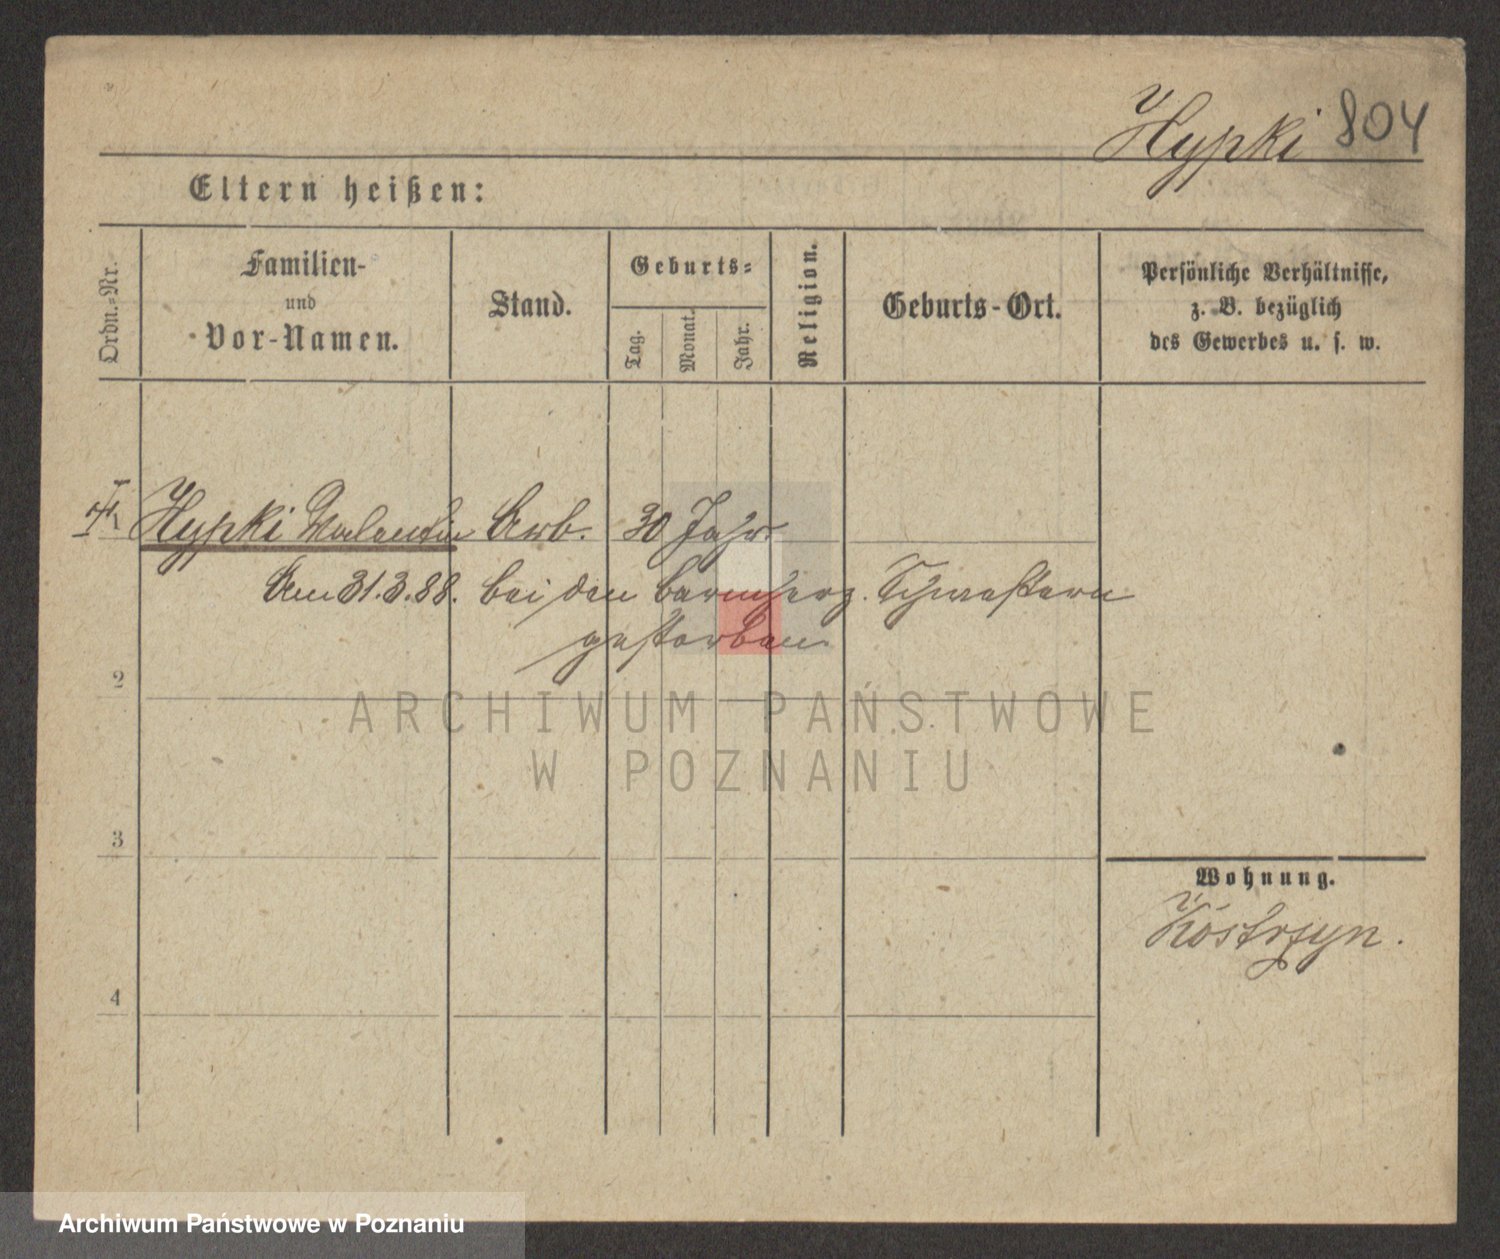 Hypki 804
Eltern heißen:
Ordn.-Nr.
Familien-
und
Vor-Namen.
Stand.
Geburts-
Tag.
Monat.
Jahr.
Religion.
Geburts-Ort.
Persönliche Verhältnisse,
z. B. bezüglich
des Gewerbes u. s. w.
1 Hypki Valentin Arb. 30 Jahr
Am 31.3.88. bei den barmherz. Schwestern
gestorben.
2
ARCHIWUM PAŃSTWOWE
W POZNANIU
3
Wohnung.
Kostrzyn.
4
Archiwum Państwowe w Poznaniu